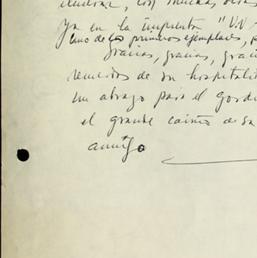 con muchas
Ya en la imprenta "UN
uno de los primeros ejemplares,
gracias, gracias,
recuerdos de su
un abrazo para el
el grande cariño de su
amigo